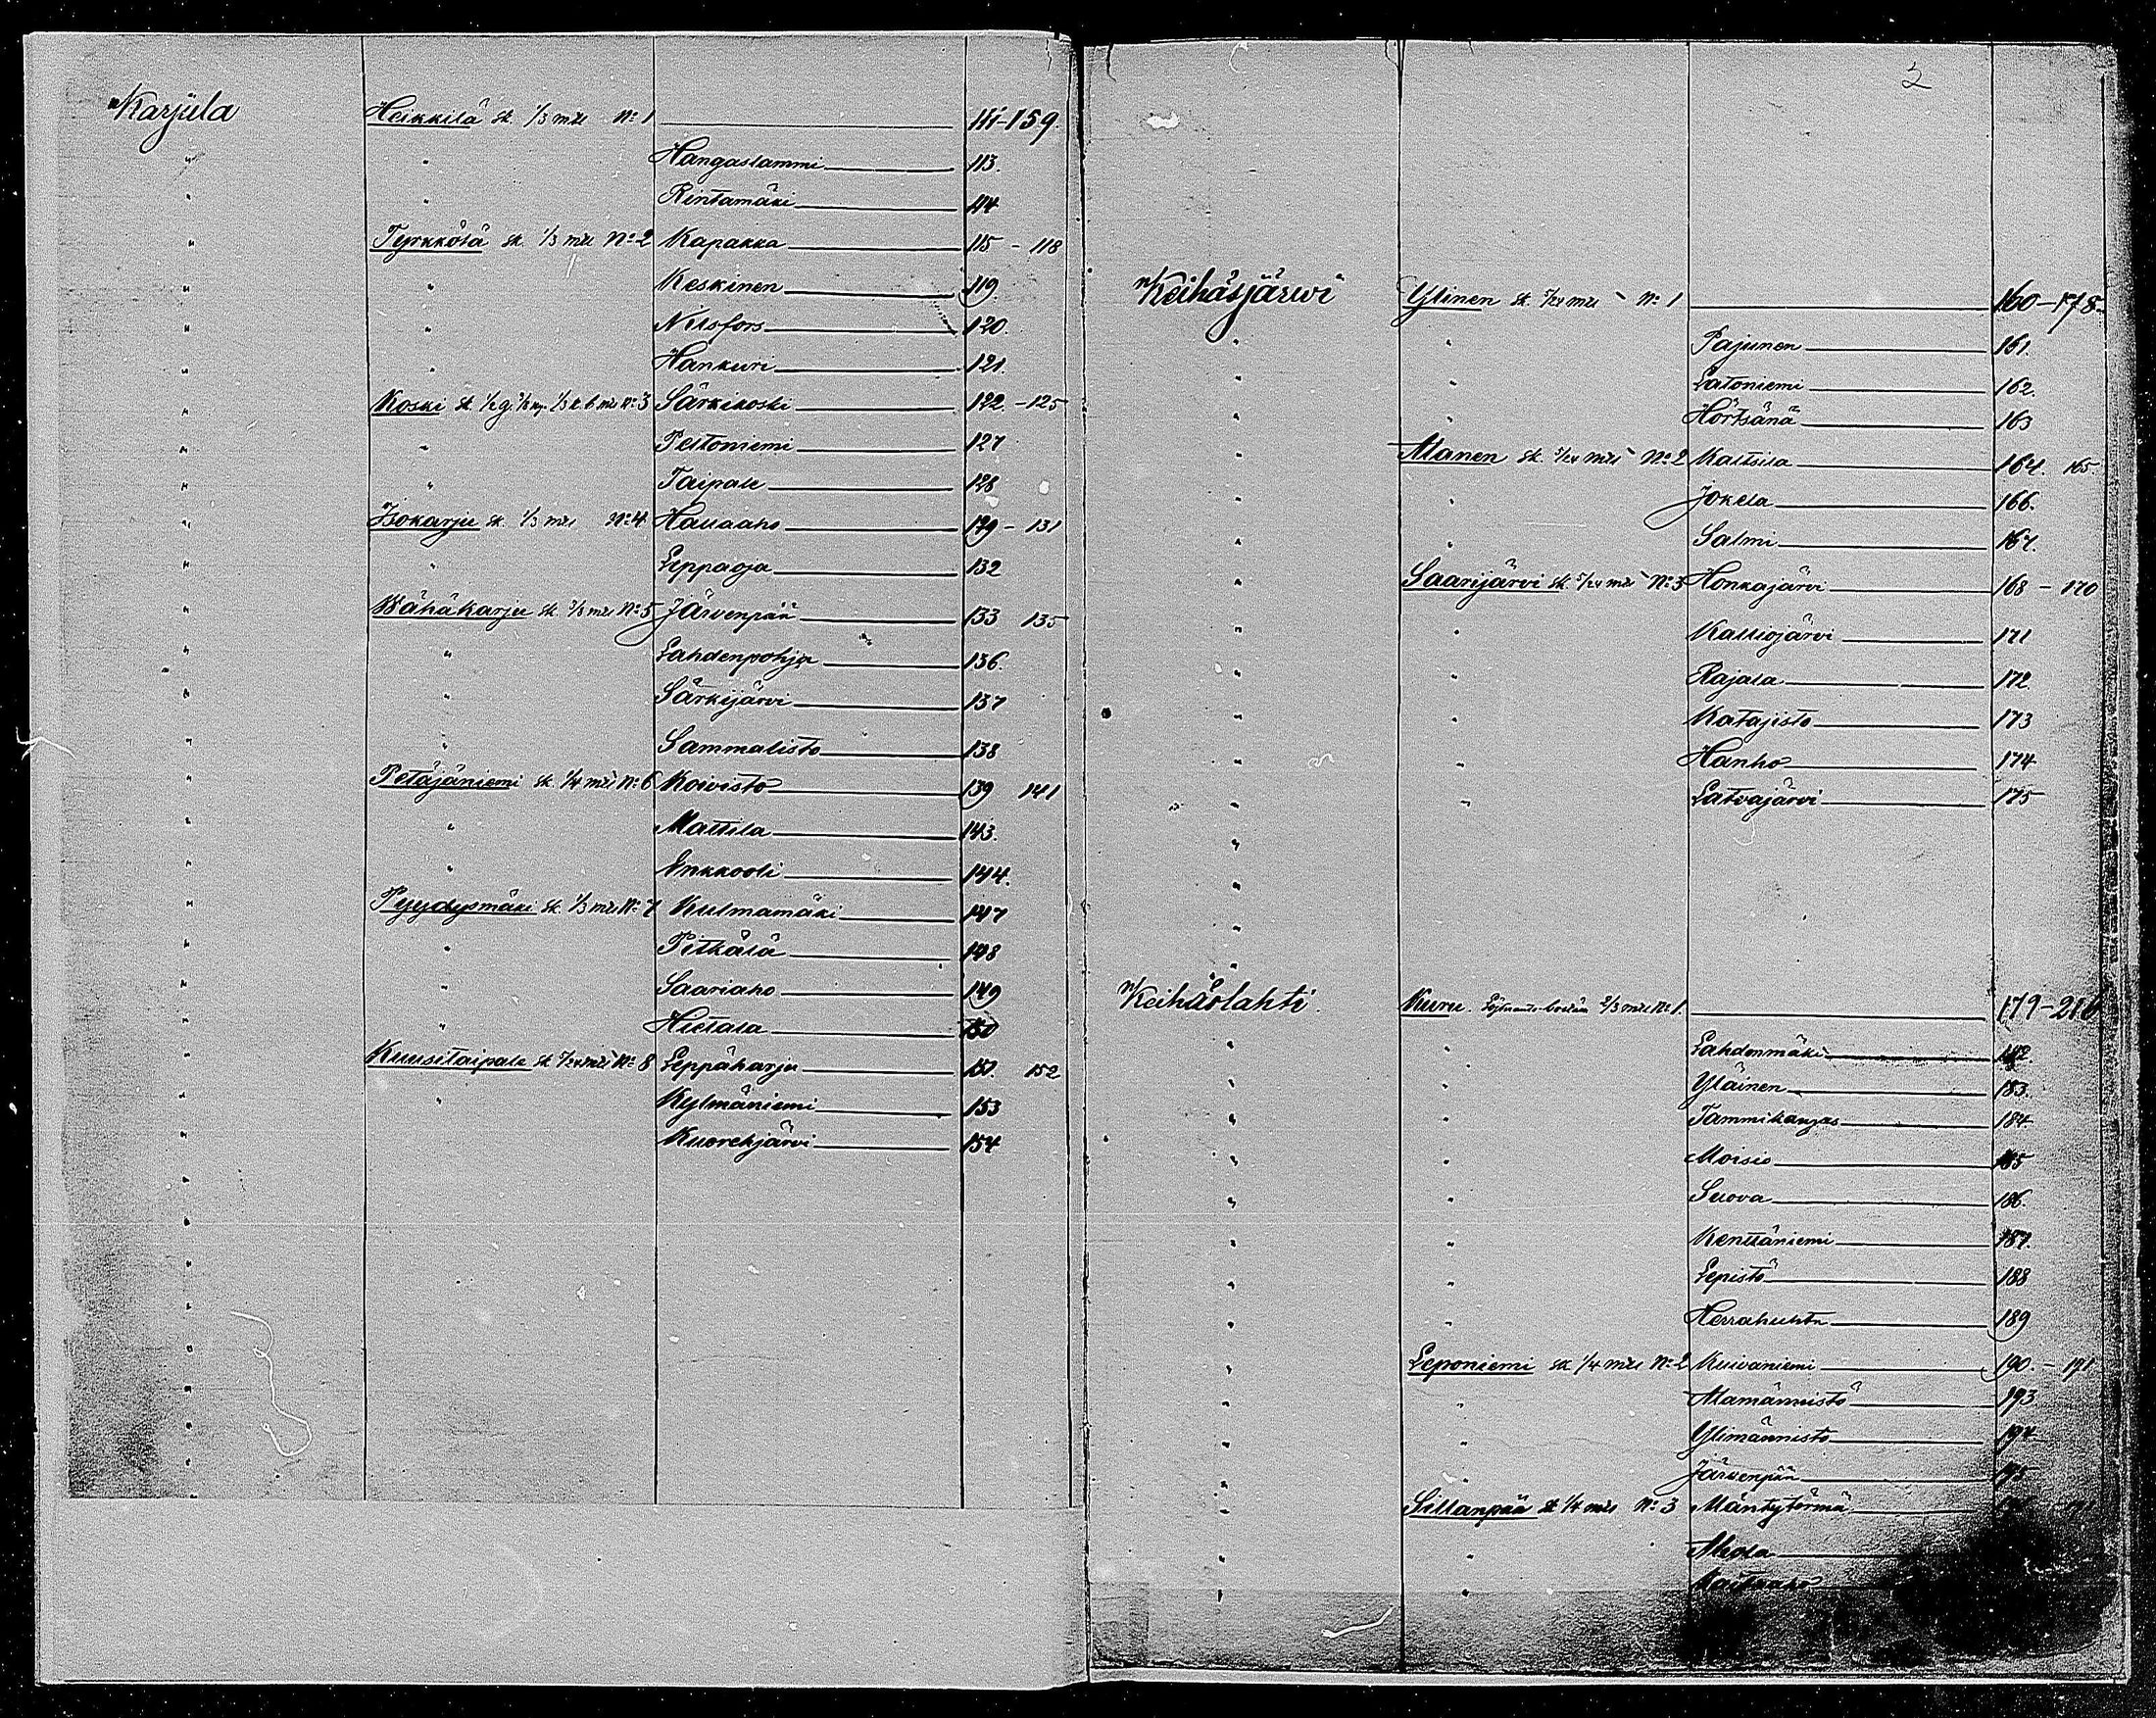 Karjula Heikkilä sk. 1/3 mtl No 1 111-159.
" " Hangaslammi 113.
" " Rintamäki 114
" Tyrkkölä sk. 1/3 mtl No 2 Kapakka 115 - 118
" " Keskinen 119.
" " Nilsfors 120.
" " Hankuri 121.
" Koski No 3 Särkikoski 122. - 125
" " Peltoniemi 127
" " Taipale 128
" Isokarju sk. 1/3 mtl No 4 Hallaaho 129 - 131
" " Leppäoja 132
" Wähäkarju sk. 1/3 mtl No 5 Järvenpää 133 135
" " Lahdenpohja 136.
" " Särkijärvi 137
" " Sammalisto 138
" Petäjäniemi sk. 1/4 mtl No 6 Koivisto 139 141
" " Mattila 143.
" " Inkkooli 144.
" Pyydysmäki sk. 1/3 mtl No 7 Kulmamäki 147
" " Pitkälä 148
" " Saariaho 149
" " Hietala 150
" Kuusitaipale sk. 7/24 mtl No 8 Leppäharju 151. 152
" " Kylmäniemi 153
" Kuorehjärvi 154
2
Keihäsjärwi Ylinen sk. 7/24 mtl No 1 160-178
" " Pajunen 161.
" " Latoniemi 162.
" " Hörtsänä 163
" Alanen sk. mtl No 2 Kaltsila 164. 165
" " Jokela 166.
" " Salmi 167.
" Saarijärvi sk. 5/24 mtl No 3 Honkajärvi 168 - 170
" " Kalliojärvi 171
" " Rajala 172.
" " Katajisto 173
" " Hanho 174
" " Latvajärvi 175
Keihäslahti. Kuru. Löjtnants-boställe 2/3 mtl No 1. 179-216
" " Lahdenmäki 182.
" " Yläinen 183.
" " Tammikangas 184
" " Moisio 185
" " Suova 186.
" " Kenttäniemi 187.
" " Lepistö 188
" " Herrahuhta 189
" Leponiemi sk. 1/4 mtl No 2 Kuivaniemi 190. - 191
" " Alamännistö 193
" " Ylimännistö 194
" " Järvenpää 195
" Sillanpää sk. 1/4 mtl No 3 Mäntytörmä
" " Ahola
" "